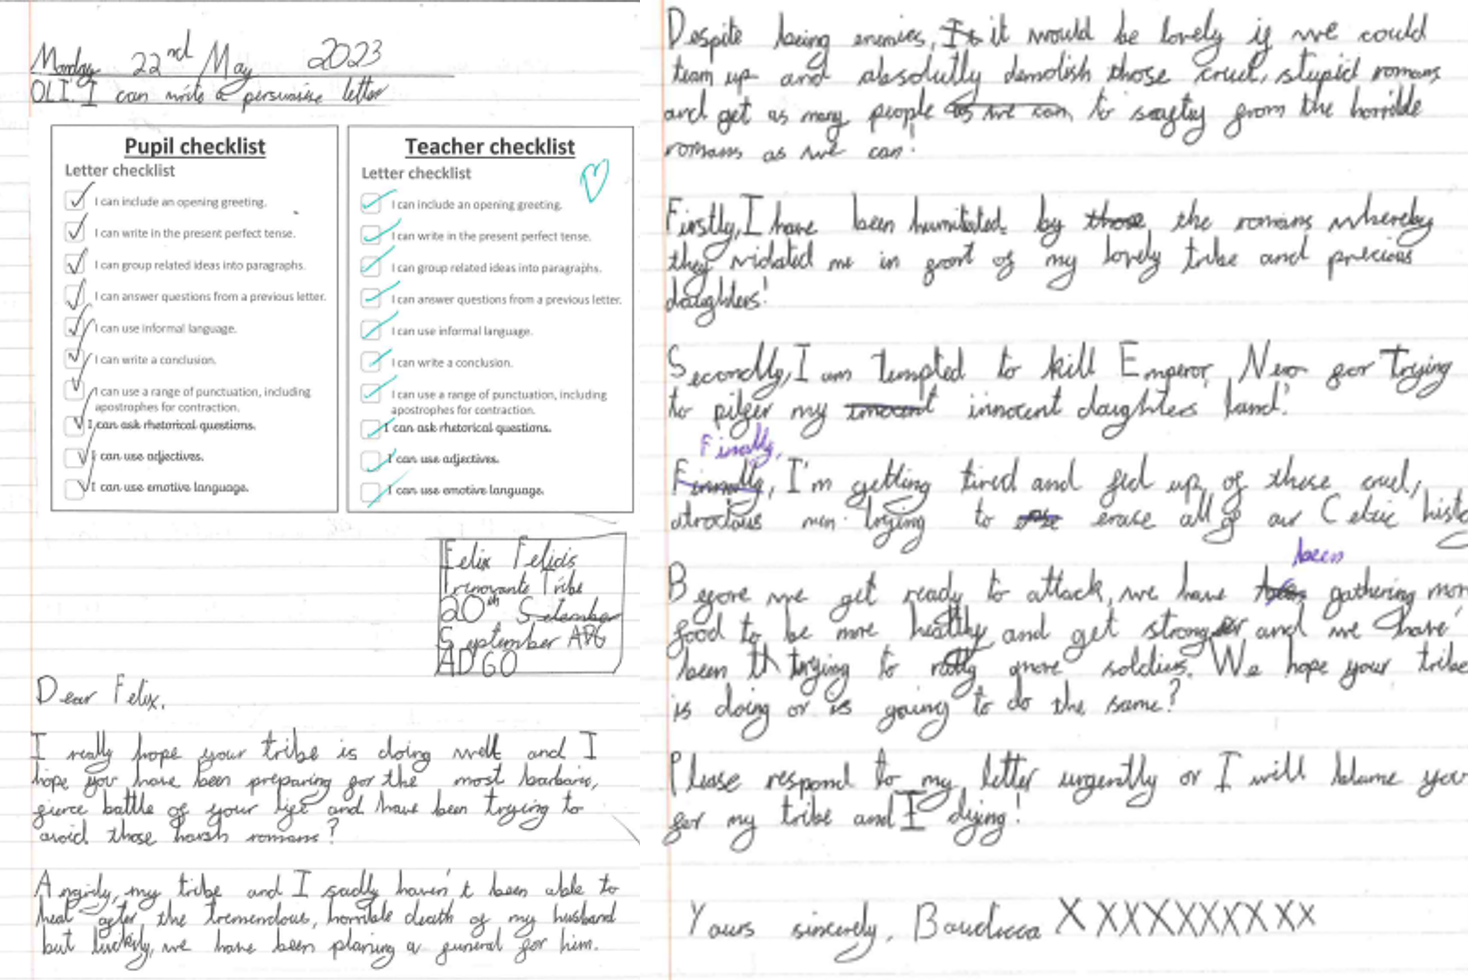 Monday 22nd May 2023
OLI. I can write a persuasive letter
Pupil checklist
Letter checklist
I can include an opening greeting.
I can write in the present perfect tense.
I can group related ideas into paragraphs.
I can answer questions from a previous letter.
I can use informal language.
I can write a conclusion.
I can use a range of punctuation, including
apostrophes for contraction.
I can ask rhetorical questions.
I can use adjectives.
I can use emotive language.
Teacher checklist
Letter checklist
I can include an opening greeting.
I can write in the present perfect tense.
I can group related ideas into paragraphs.
I can answer questions from a previous letter.
I can use informal language.
I can write a conclusion.
I can use a range of punctuation, including
apostrophes for contraction.
I can ask rhetorical questions.
I can use adjectives.
I can use emotive language.
Felix Felicis
Trinovante Tribe
20th
September
AD 60
Dear Felix,
I really hope your tribe is doing well and I
hope you have been preparing for the most barbaric,
fierce battle of your life and have been trying to
avoid those harsh romans?
Angrily, my tribe and I sadly haven't been able to
heal after the tremendous, horrible death of my husband
but luckily, we have been planing a funeral for him.
Despite being enemies, it would be lovely if we could
team up and absolutly demolish those cruel, stupid romans
and get as many people to safty from the horrible
romans as we can!
Firstly, I have been humiliated by the romans whereby
they violated me in front of my lovely tribe and precious
daughters!
Secondly, I am tempted to kill Emperor Nero for trying
to pilfer my innocent daughters land!
Finally,
I'm getting tired and fed up of these cruel,
atrocious men trying to erase all of our Celtic histo
been
Before we get ready to attack, we have gathering mor
food to be more healthy and get stronger and we have
been trying to rally more soldiers. We hope your tribe
is doing or is going to do the same?
Please respond to my letter urgently or I will blame you
for my tribe and I dying!
Yours sincerely, Boudicca X XXXXXXXXX